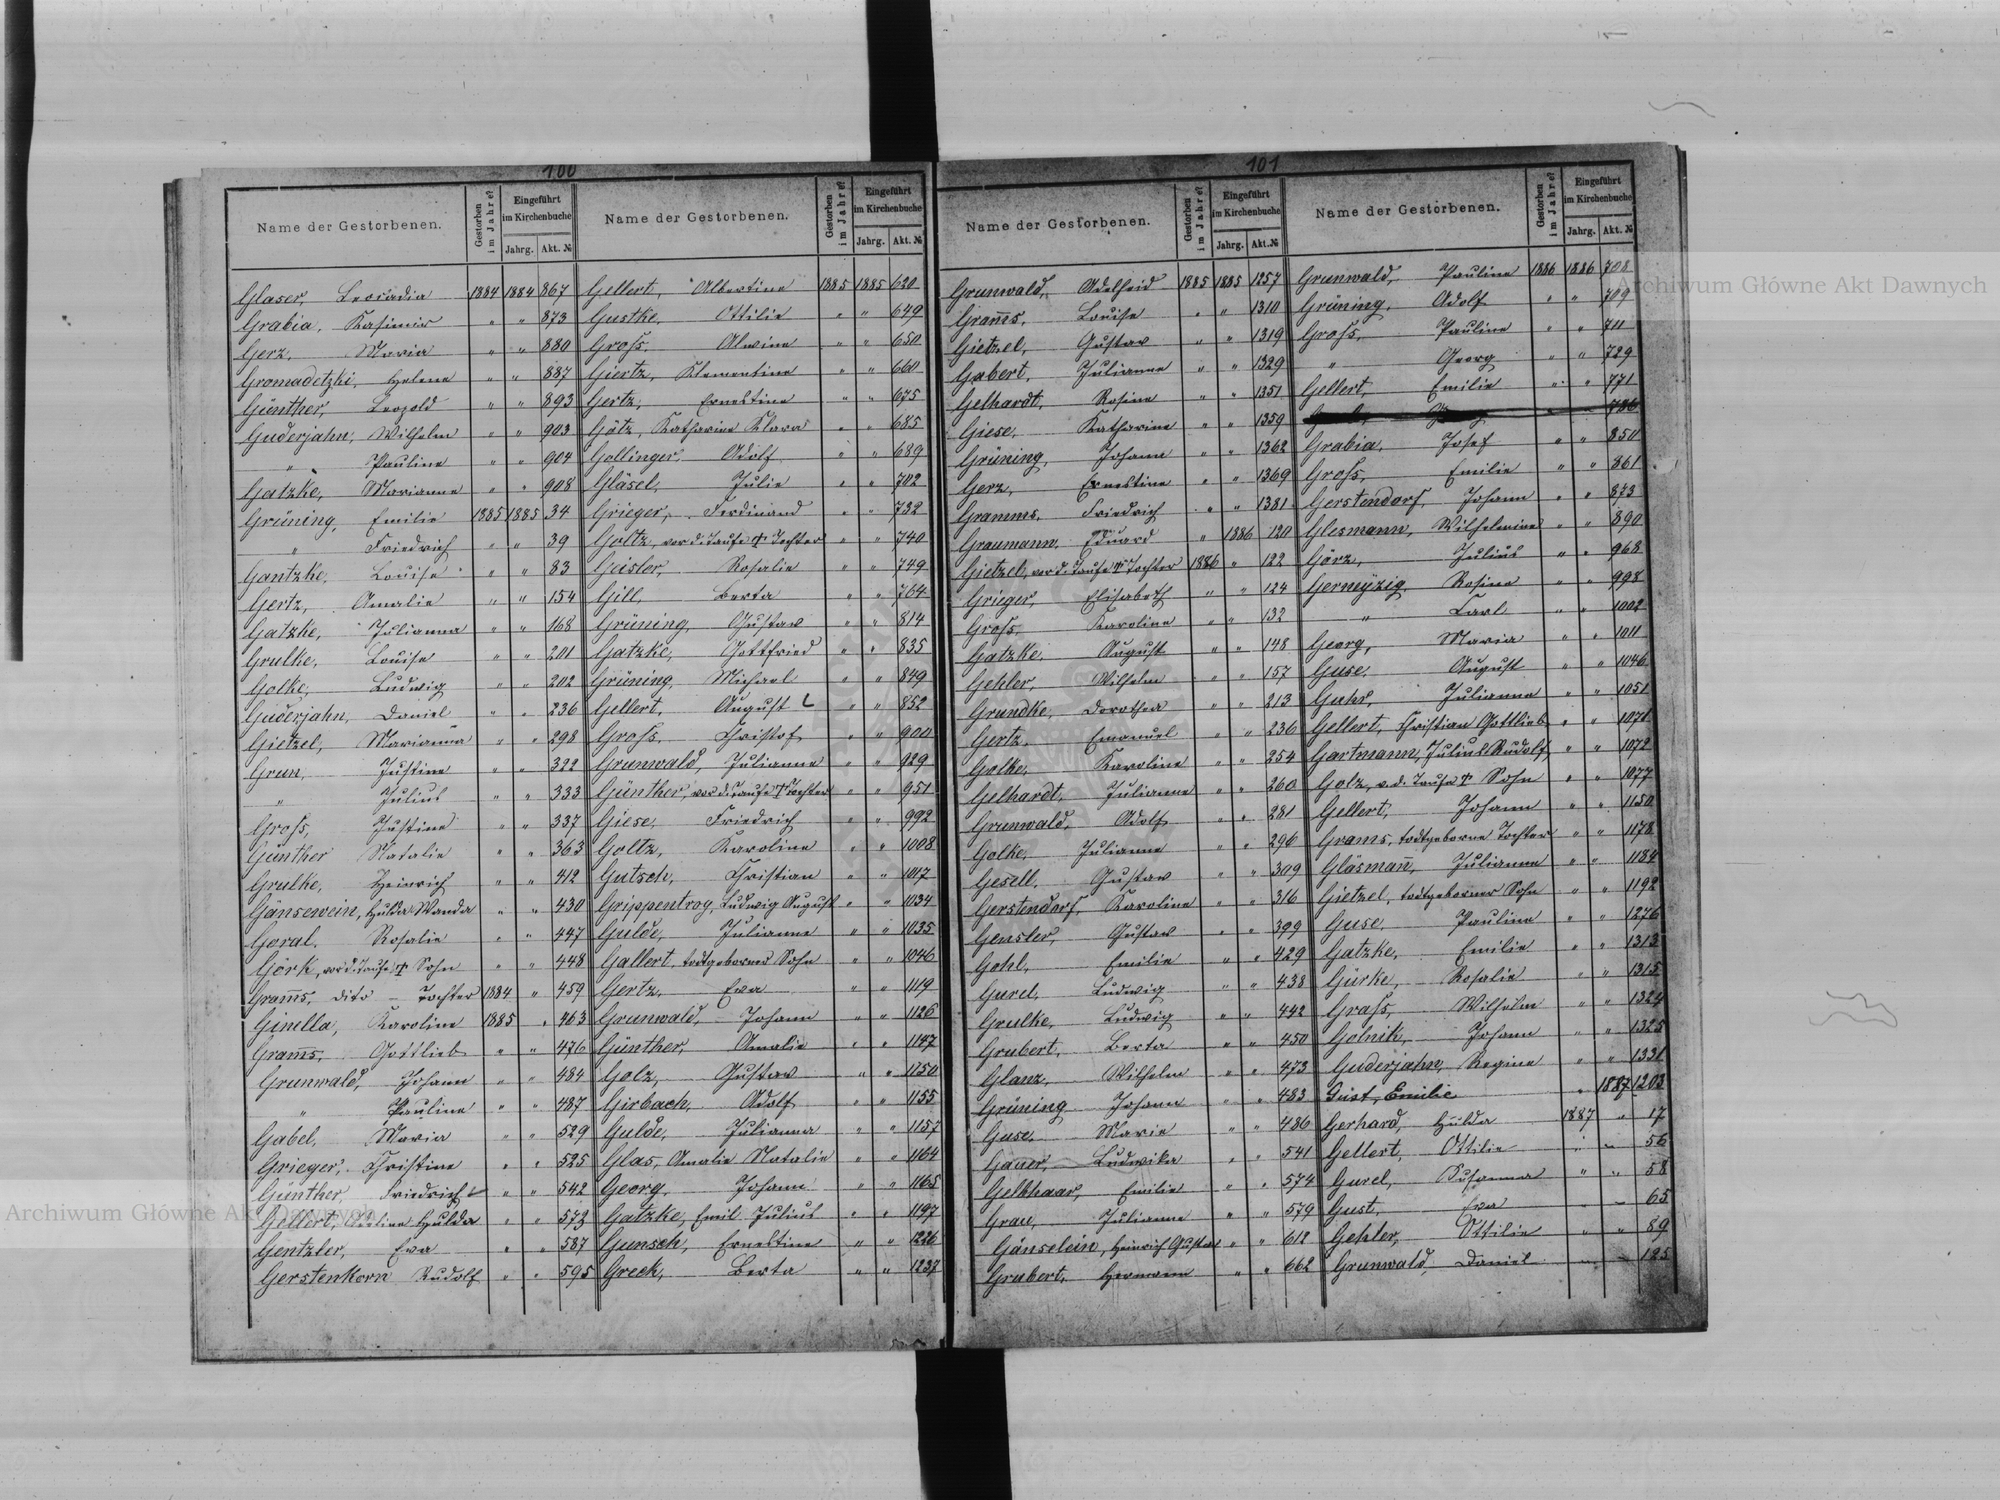 100
Name der Gestorbenen. Gestorben im Jahre? Eingeführt im Kirchenbuche Jahrg. Akt. №
Glaser, Leocadia 1884 1884 867
Grabia, Kasimir " " 873
Gerz, Maria " " 880
Gromadetzki, Helene " " 887
Günther, Leopold " " 893
Guderjahn, Wilhelm " " 903
" Pauline " " 904
Gatzke, Marianne " " 908
Grüning, Emilie 1885 1885 34
" Friedrich " " 39
Gantzke, Louise " " 83
Gertz, Amalie " " 154
Gatzke, Julianna " " 168
Grulke, Louise " " 201
Golke, Ludwig " " 202
Guderjahn, Daniel " " 236
Gietzel, Marianna " " 298
Grun, Justine " " 322
" Julius " " 333
Groß, Justine " " 337
Günther Natalie " " 363
Grulke, Heinrich " " 412
Gänsewein, Hulda Wanda " " 430
Goral, Rosalie " " 447
Görk, vor d. Taufe † Sohn " " 448
Gram̅s, dito – Tochter 1884 " 459
Ginella, Karoline 1885 " 463
Gram̅s, Gottlieb " " 476
Grunwald, Johann " " 484
" Pauline " " 487
Gabel, Maria " " 529
Grieger, Christine " " 525
Günther, Friedrich " " 542
Gellert, Hulda " " 573
Gentzler, Eva " " 587
Gerstenkorn Rudolf " " 595
Name der Gestorbenen. Gestorben im Jahre? Eingeführt im Kirchenbuche Jahrg. Akt. №
Gellert, Albertine 1885 1885 620
Gustke, Ottilie " " 649
Groß, Alwine " " 650
Giertz, Klementine " " 660
Gertz, Ernestine " " 675
Götz, Katharina Klara " " 685
Gollinger, Adolf " " 689
Gläsel, Julie " " 702
Grieger, Ferdinand " " 732
Goltz, vor d. Taufe † Tochter " " 740
Geisler, Rosalie " " 749
Gill, Berta " " 764
Grüning, Gustav " " 814
Gatzke, Gottfried " " 835
Grüning, Michael " " 849
Gellert, August " " 852
Groß, Christof " " 900
Grunwald, Julianne " " 929
Günther, vor d. Taufe † Tochter " " 951
Giese, Friedrich " " 992
Goltz, Karoline " " 1008
Gutsch, Christian " " 1017
Grippentrog, Ludwig August " " 1034
Gulde, Julianne " " 1035
Gallert, todtgeborner Sohn " " 1046
Gertz, Eva " " 1119
Grunwald, Johann " " 1126
Günther, Amalie " " 1147
Golz, Gustav " " 1150
Girbach, Adolf " " 1155
Gulde, Julianna " " 1157
Glas, Amalie Natalie " " 1164
Georg, Johann " " 1165
Gatzke, Emil Julius " " 1197
Gunsch, Ernestine " " 1226
Greek, Berta " " 1237
101
Name der Gestorbenen. Gestorben im Jahre? Eingeführt im Kirchenbuche Jahrg. Akt. №
Grunwald, Adelheid 1885 1885 1257
Gram̅s, Louise " " 1310
Gietzel, Gustav " " 1319
Gabert, Julianne " " 1329
Gelhardt, Rosine " " 1351
Giese, Katharine " " 1359
Grüning, Johann " " 1362
Gerz, Ernestine " " 1369
Gramms, Friedrich " " 1381
Graumann, Eduard " 1886 120
Gietzel, vor d. Taufe † Tochter 1886 " 122
Grieger, Elisabeth " " 124
Groß, Karoline " " 132
Gatzke, August " " 148
Gehler, Wilhelm " " 157
Grundke, Dorothea " " 213
Gertz, Emanuel " " 236
Golke, Karoline " " 254
Gelhardt, Julianne " " 260
Grunwald, Adolf " " 281
Golke, Julianne " " 296
Gesell, Gustav " " 309
Gerstendorf, Karoline " " 316
Gensler, Gustav " " 399
Gohl, Emilie " " 429
Gurel, Ludwig " " 438
Grulke, Ludwig " " 442
Grubert, Berta " " 450
Glanz, Wilhelm " " 473
Grüning Johann " " 483
Guse, Marie " " 486
Gauer, Ludwika " " 541
Gelbhaar, Emilie " " 574
Grau, Julianne " " 579
Gänselein, Heinrich Gustav " " 612
Grubert, Hermann " " 662
Name der Gestorbenen. Gestorben im Jahre? Eingeführt im Kirchenbuche Jahrg. Akt. №
Grunwald, Pauline 1886 1886 708
Grüning, Adolf " " 709
Groß, Pauline " " 711
" Georg " " 729
Gellert, Emilie " " 771
786
Grabia, Josef " " 850
Groß, Emilie " " 861
Gerstendorf, Johann " " 873
Glesmann, Wilhelmine " " 890
Görz, Julius " " 968
Germyzig, Rosine " " 998
" Carl " " 1002
Georg, Maria " " 1011
Guse, August " " 1046
Guhr, Julianna " " 1051
Gellert, Christian Gottlieb " " 1071
Gartmann, Julius Rudolf " " 1072
Golz, v. d. Taufe † Sohn " " 1077
Gellert, Johann " " 1150
Grams, todtgeborne Tochter " " 1178
Gläsman̅, Julianne " " 1184
Gietzel, todtgeborner Sohn " " 1192
Guse, Pauline " " 1276
Gatzke, Emilie " " 1313
Gürke, Rosalie " " 1315
Graß, Wilhelm " " 1324
Golnik, Johann " " 1325
Guderjahn, Regine " " 1331
Geist, Emilie " 1887 1203
Gerhard, Hulda 1887 " 17
Gellert, Ottilie " " 56
Gurel, Susanna " " 58
Gust, Eva " " 65
Gehler, Ottilie " " 89
Grunwald, Daniel " " 125
Archiwum Główne Akt Dawnych
Archiwum Główne Akt Dawnych